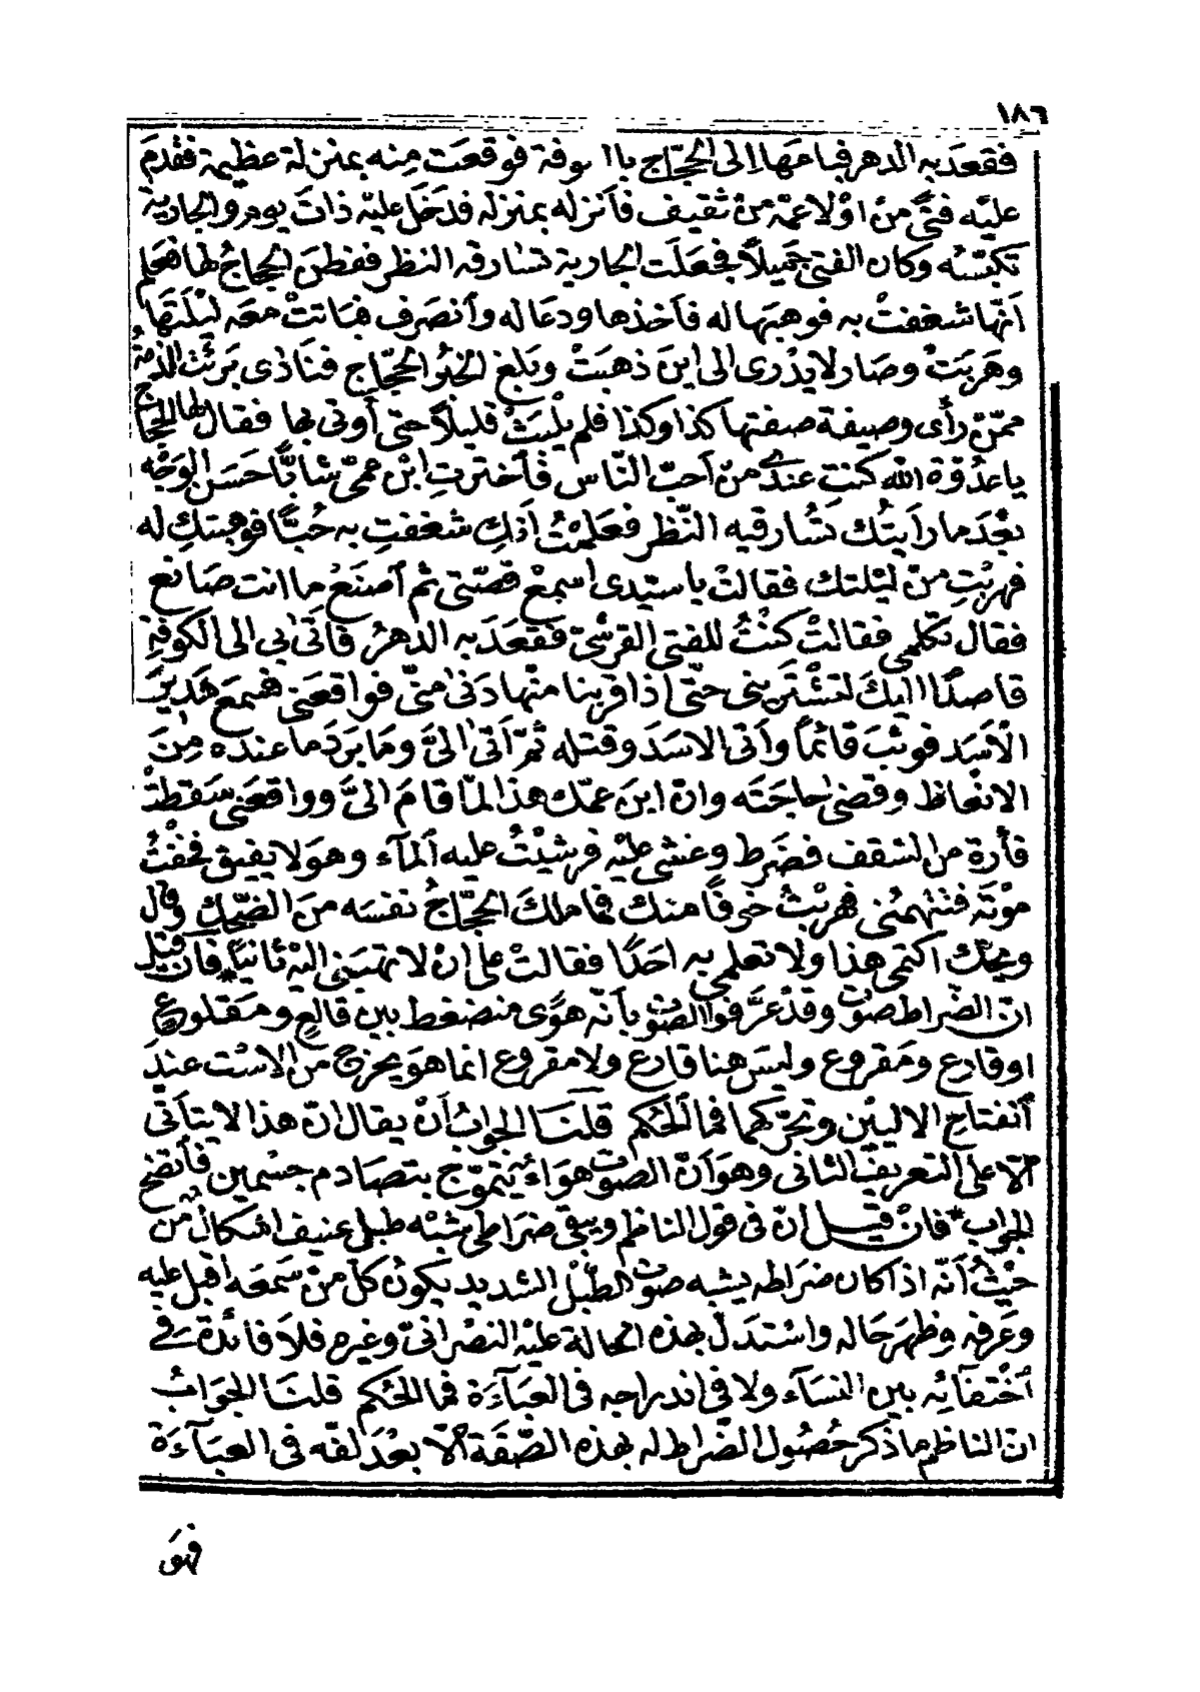 ١٨٦
فقعد به الدهر فباعها الى الحجّاج بالكوفة فوقعت منه بمنزلة عظيمة فقدم
عليه فتىً من اولاد عمّه من ثقيف فأنزله بمنزله فدخل عليه ذات يوم والجارية
تكبّسه وكان الفتى جميلاً فجعلت الجارية تسارقه النظر ففطن الحجاج لها فعلم
أنّها شغفت به فوهبها له فأخذها ودعا له وأنصرف فباتت معه ليلتها
وهربت وصار لا يدرى الى اين ذهبت وبلغ الخبر الحجّاج فنادى برئت الذمّة
ممّن رأى وصيفة صفتها كذا وكذا فلم يلبث قليلاً حتى أوتى بها فقال لها الحجاج
يا عدوّة الله كنت عندى من أحبّ النّاس فأخترتِ ابن عمّى شابًّا حسن الوجه
بعد ما رأيتك تسارقيه النّظر فعلمتُ أنكِ شغفتِ به حُبًّا فوهبتكِ له
فهربتِ من ليلتك فقالت يا سيّدى اسمع قصّتى ثم أصنع ما انت صانع
فقال تكلّمى فقالت كنتُ للفتى القرشىّ فقعد به الدهر فاتى بى الى الكوفة
قاصدًا اليك لتشترينى حتّى اذا قربنا منها دنى منّى فواقعنى فسمع هدير
الأسد فوثب قائماً وأتى الاسد وقتله ثمّ أتى الىّ وما برد ما عنده من
الانعاظ وقضى حاجته وان ابن عمّك هذا لمّا قام الىّ وواقعنى سقطت
فأرة من السّقف فضرط وغشى عليه فرشيتُ عليه ألمآء وهو لا يفيق فخفتُ
موته فتتهمنى فهربتُ خوفًا منك فما ملك الحجّاجُ نفسه من الضّحك وقال
ويحك اكتمى هذا ولا تعلمى به احدًا فقالت على ان لا تهبنى اليه ثانيًا * فان قيل
ان الضّراط صوت وقد عرّفوا الصّوت بأنّه هوًى منضغط بين قالع ومقلوع
او قارع ومقروع وليس هنا قارع ولا مقروع انما هو يخرج من الاست عند
أنفتاح الاليتين وتحرّكهما فما ألحكم قلنا الجواب أن يقال انّ هذا لا يتأتى
الّا على ألتعريف الثانى وهو أنّ الصّوت هواء يتموّج بتصادم جسمين فأتضح
الجواب * فان قيل انّ فى قول الناظم ويبقى ضراطى يشبه طبل عنيف اشكال من
حيث أنّه اذا كان ضراطه يشبه صوت الطّبل الشديد يكون كلّ من سمعه اقبل عليه
وعرفه وظهر حاله واستدلّ بهذه الحالة عليه النصرانىّ وغيره فلا فائدة فى
أختفائه بين النسآء ولا فى اندراجه فى العبآءة فما الحكم قلنا الجواب
ان الناظم ما ذكر حصول الضّراط له بهذه الصّفة الّا بعد لفّه فى العبآءة
فهو